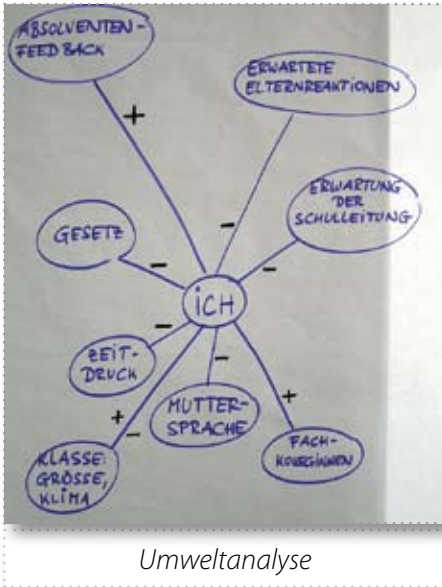 ABSOLVENTEN-
FEEDBACK
+
ERWARTETE
ELTERNREAKTIONEN
-
ERWARTUNG
DER
SCHULLEITUNG
-
GESETZ
-
ICH
ZEIT-
DRUCK
-
MUTTER-
SPRACHE
-
FACH-
KOLLEGINNEN
+
KLASSE:
GRÖSSE,
KLIMA
+
-
Umweltanalyse